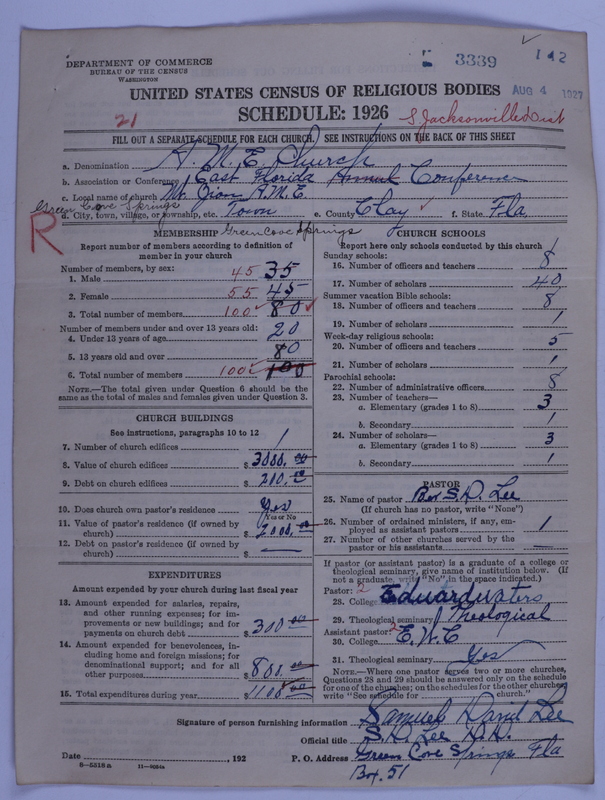 3339
112
AUG 4 1927
DEPARTMENT OF COMMERCE
BUREAU OF THE CENSUS
WASHINGTON
UNITED STATES CENSUS OF RELIGIOUS BODIES
SCHEDULE: 1926
21
S Jacksonville Dist
FILL OUT A SEPARATE SCHEDULE FOR EACH CHURCH. SEE INSTRUCTIONS ON THE BACK OF THIS SHEET
a. Denomination A. M. E. Church
b. Association or Conference East Florida Annual Conference
c. Local name of church Mt. Zion A.M.E.
Green Cove Springs
d. City, town, village, or township, etc. Town e. County Clay f. State Fla
Green Cove Springs
R
MEMBERSHIP
Report number of members according to definition of member in your church
Number of members, by sex:
1. Male 45 35
2. Female 55 45
3. Total number of members 100 80
Number of members under and over 13 years old:
4. Under 13 years of age 20
5. 13 years old and over 80
6. Total number of members 100 100
NOTE.—The total given under Question 6 should be the
same as the total of males and females given under Question 3.
CHURCH BUILDINGS
See instructions, paragraphs 10 to 12
7. Number of church edifices 1
8. Value of church edifices $3000.00
9. Debt on church edifices $200.
10. Does church own pastor's residence Yes
Yes or No
11. Value of pastor's residence (if owned by
church) $2000.00
12. Debt on pastor's residence (if owned by
church) $ —
EXPENDITURES
Amount expended by church during last fiscal year
13. Amount expended for salaries, repairs,
and other running expenses; for im-
provements or new buildings; and for
payments on church debt $300 00
14. Amount expended for benevolences, in-
cluding home and foreign missions; for
denominational support; and for all
other purposes $800.00
15. Total expenditures during year $1100 00
CHURCH SCHOOLS
Report here only schools conducted by this church
Sunday schools:
16. Number of officers and teachers 8
17. Number of scholars 40
Summer vacation Bible schools:
18. Number of officers and teachers 8
19. Number of scholars 1
Week-day religious schools:
20. Number of officers and teachers 5
21. Number of scholars 1
Parochial schools:
22. Number of administrative officers 8
23. Number of teachers—
a. Elementary (grades 1 to 8) 3
b. Secondary 1
24. Number of scholars—
a. Elementary (grades 1 to 8) 3
b. Secondary 1
PASTOR
25. Name of pastor Rev S.D. Lee
(If church has no pastor, write "None")
26. Number of ordained ministers, if any, em-
ployed as assistant pastors 1
27. Number of other churches served by the
pastor or his assistants —
If pastor (or assistant pastor) is a graduate of a college or
theological seminary, give name of institution below. (If
not a graduate, write "No" in the space indicated.)
Pastor: 2
28. College Edward Waters
29. Theological seminary Theological
Assistant pastor: 2
30. College E.W.C
31. Theological seminary Yes
NOTE.—Where one pastor serves two or more churches,
Questions 28 and 29 should be answered only on the schedule
for one of the churches; on the schedules for the other churches
write "See schedule for church."
Signature of person furnishing information Samuel David Lee
Official title S.D. Lee D.D.
Date , 192 P. O. Address Green Cove Springs Fla
Box. 51
8—5518a 11—9084a